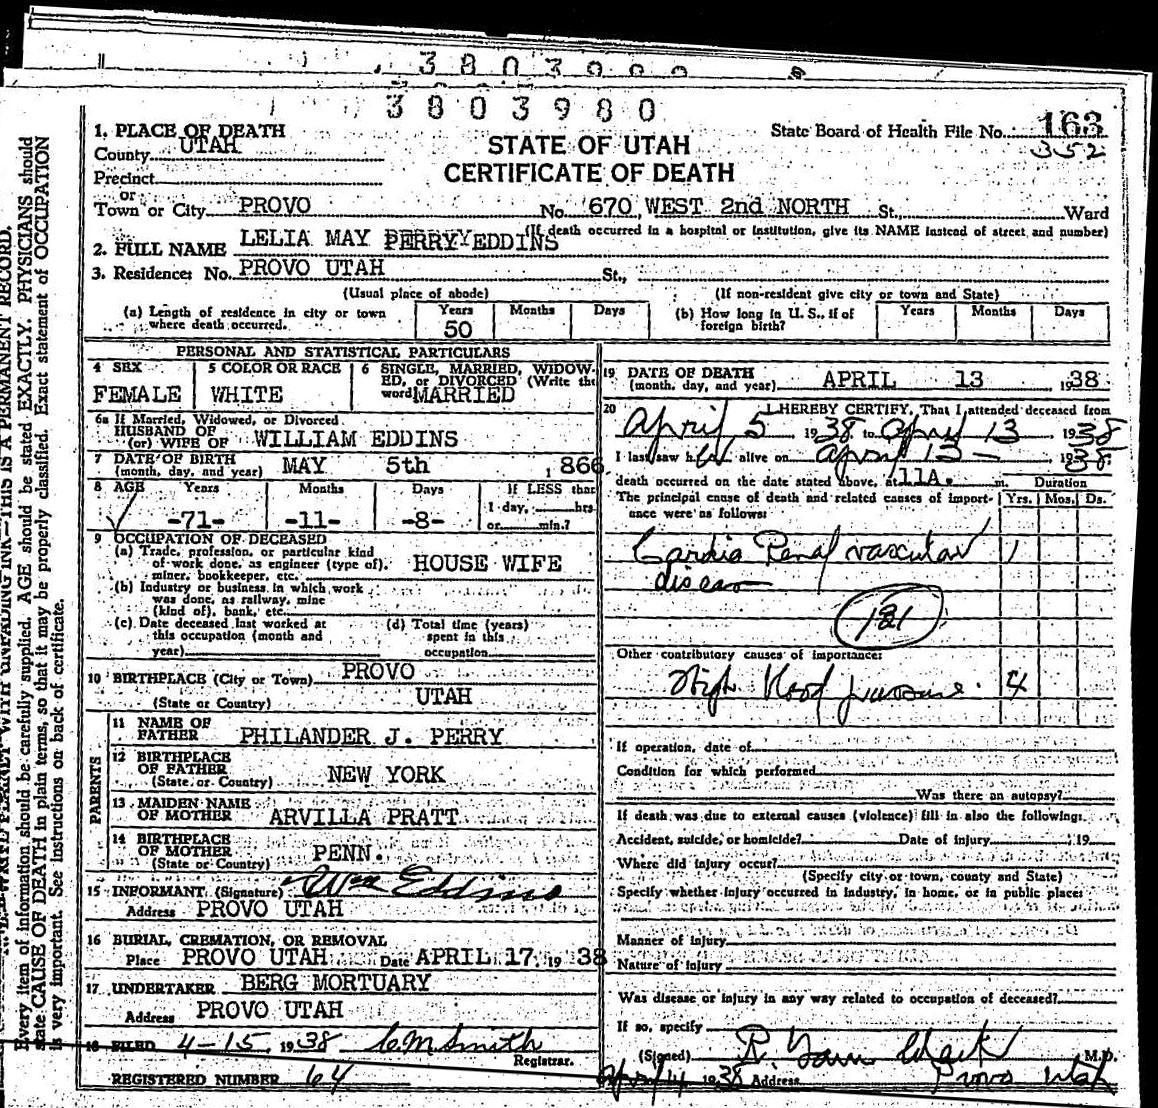 3803980
1. PLACE OF DEATH
County UTAH
STATE OF UTAH
CERTIFICATE OF DEATH
State Board of Health File No. 163
352
Precinct
or
Town or City PROVO No. 670 WEST 2nd NORTH St., Ward
(If death occurred in a hospital or institution, give its NAME instead of street and number)
2. FULL NAME LELIA MAY PERRY EDDINS
3. Residence: No. PROVO UTAH St.,
(Usual place of abode) (If non-resident give city or town and State)
(a) Length of residence in city or town where death occurred. Years 50 Months Days
(b) How long in U. S., if of foreign birth? Years Months Days
PERSONAL AND STATISTICAL PARTICULARS
4 SEX FEMALE
5 COLOR OR RACE WHITE
6 SINGLE, MARRIED, WIDOWED, or DIVORCED (Write the word) MARRIED
6a If Married, Widowed, or Divorced
HUSBAND OF
(or) WIFE OF WILLIAM EDDINS
7 DATE OF BIRTH
(month, day, and year) MAY 5th 1866
8 AGE Years Months Days If LESS than
1 day, hrs
-71- -11- -8- or min.?
9 OCCUPATION OF DECEASED
(a) Trade, profession, or particular kind
of work done, as engineer (type of), HOUSE WIFE
miner, bookkeeper, etc.
(b) Industry or business in which work
was done, as railway, mine
(kind of), bank, etc.
(c) Date deceased last worked at
this occupation (month and
year)
(d) Total time (years)
spent in this
occupation
10 BIRTHPLACE (City or Town) PROVO
(State or Country) UTAH
PARENTS
11 NAME OF
FATHER PHILANDER J. PERRY
12 BIRTHPLACE
OF FATHER NEW YORK
(State or Country)
13 MAIDEN NAME
OF MOTHER ARVILLA PRATT
14 BIRTHPLACE
OF MOTHER PENN.
(State or Country)
15 INFORMANT (Signature) Wm Eddins
Address PROVO UTAH
16 BURIAL, CREMATION, OR REMOVAL
Place PROVO UTAH Date APRIL 17, 1938
17 UNDERTAKER BERG MORTUARY
Address PROVO UTAH
18 FILED 4-15, 1938 C M Smith
Registrar.
REGISTERED NUMBER 64
19 DATE OF DEATH
(month, day, and year) APRIL 13 1938
20 I HEREBY CERTIFY, That I attended deceased from
April 5 1938 to April 13 1938
I last saw her alive on April 13 1938
death occurred on the date stated above, at 11A. m. Duration
The principal cause of death and related causes of import- Yrs. Mos. Ds.
ance were as follows:
Cardio Renal vascular 1
disease
131
Other contributory causes of importance:
High blood pressure. 4
If operation, date of
Condition for which performed
Was there an autopsy?
If death was due to external causes (violence) fill in also the following:
Accident, suicide, or homicide? Date of injury 19
Where did injury occur?
(Specify city or town, county and State)
Specify whether injury occurred in industry, in home, or in public place:
Manner of injury
Nature of injury
Was disease or injury in any way related to occupation of deceased?
If so, specify
(Signed) R. Clark M.D.
April 14 1938 Address Provo Utah
Every item of information should be carefully supplied. AGE should be stated EXACTLY. PHYSICIANS should
state CAUSE OF DEATH in plain terms, so that it may be properly classified. Exact statement of OCCUPATION
is very important. See Instructions on back of certificate.